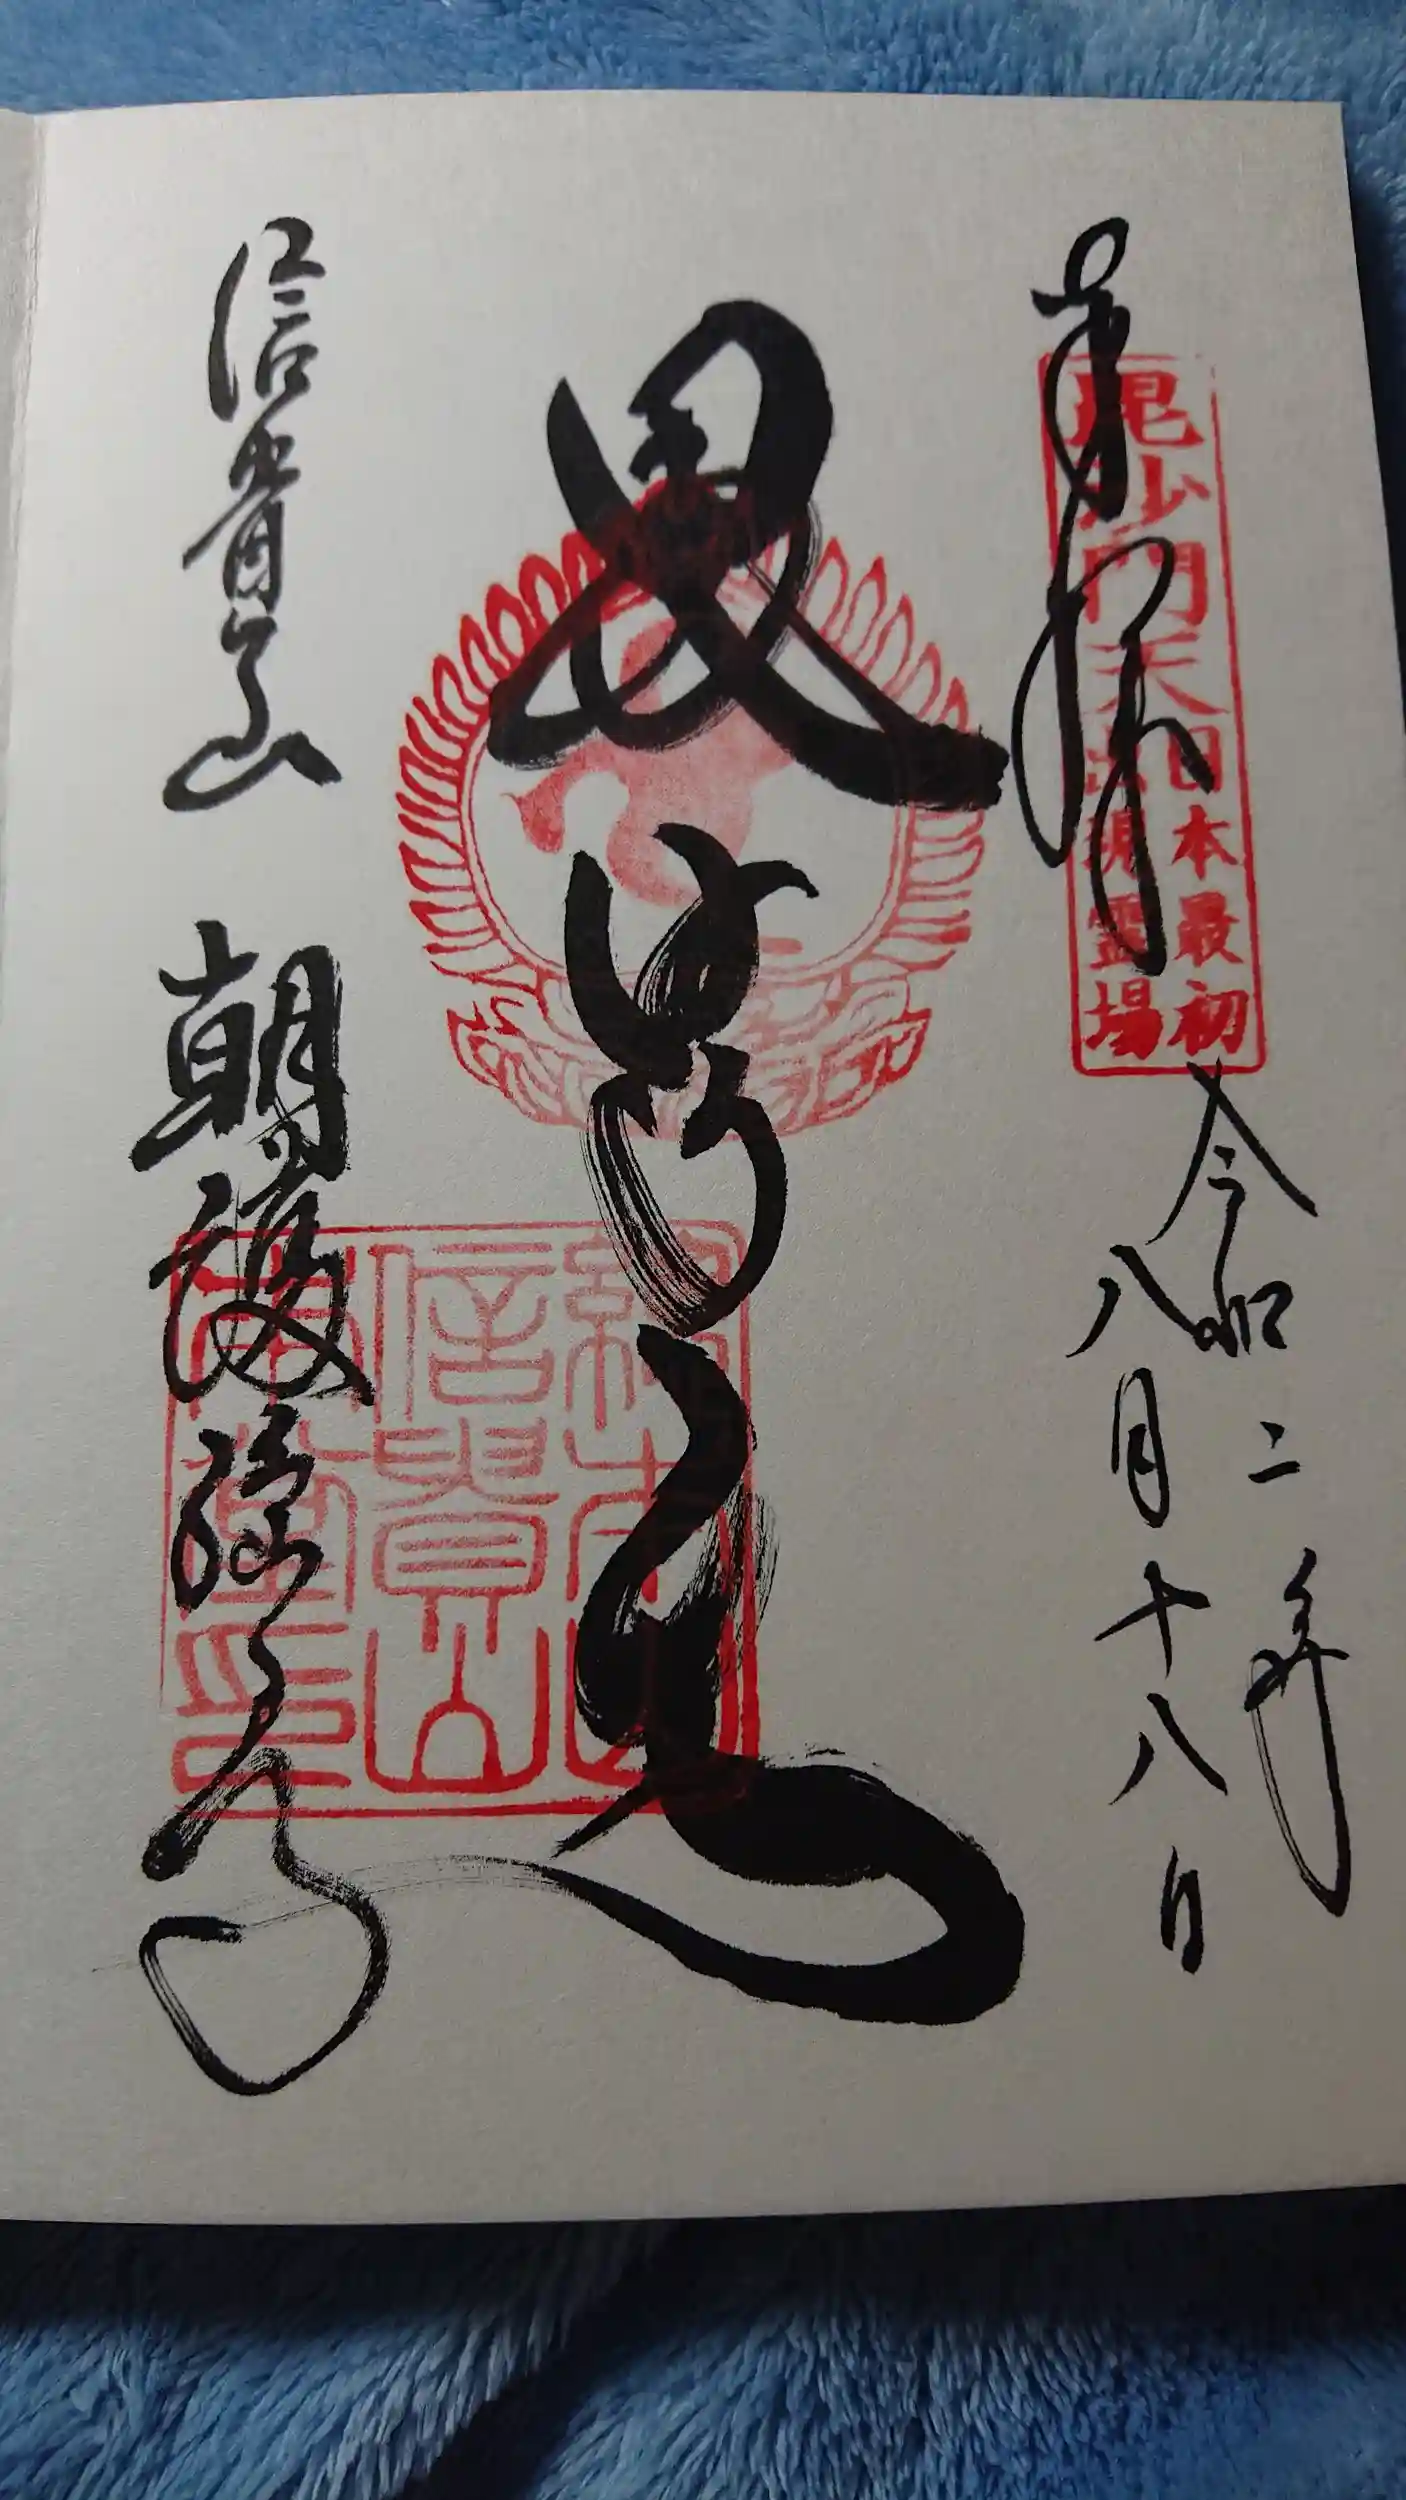 奉拝
毘沙門天
日本最初
出現霊場
令和二年
八月十八日
毘沙門天
総本山
信貴山
本堂印
信貴山 朝護孫子寺